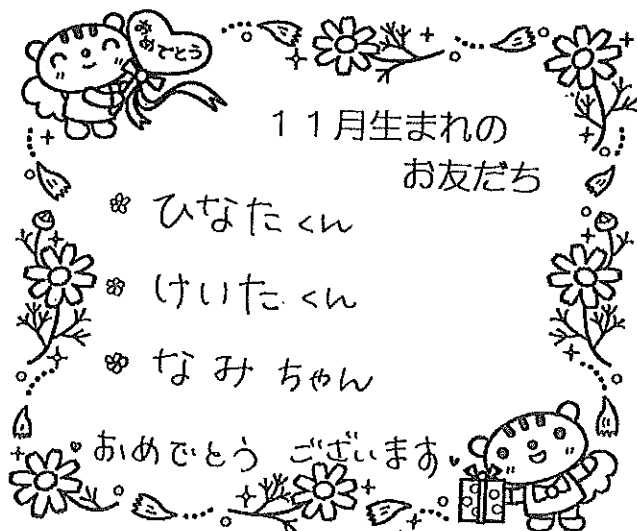 おめでとう
11月生まれの
お友だち
ひなたくん
けいたくん
なみちゃん
おめでとう ございます